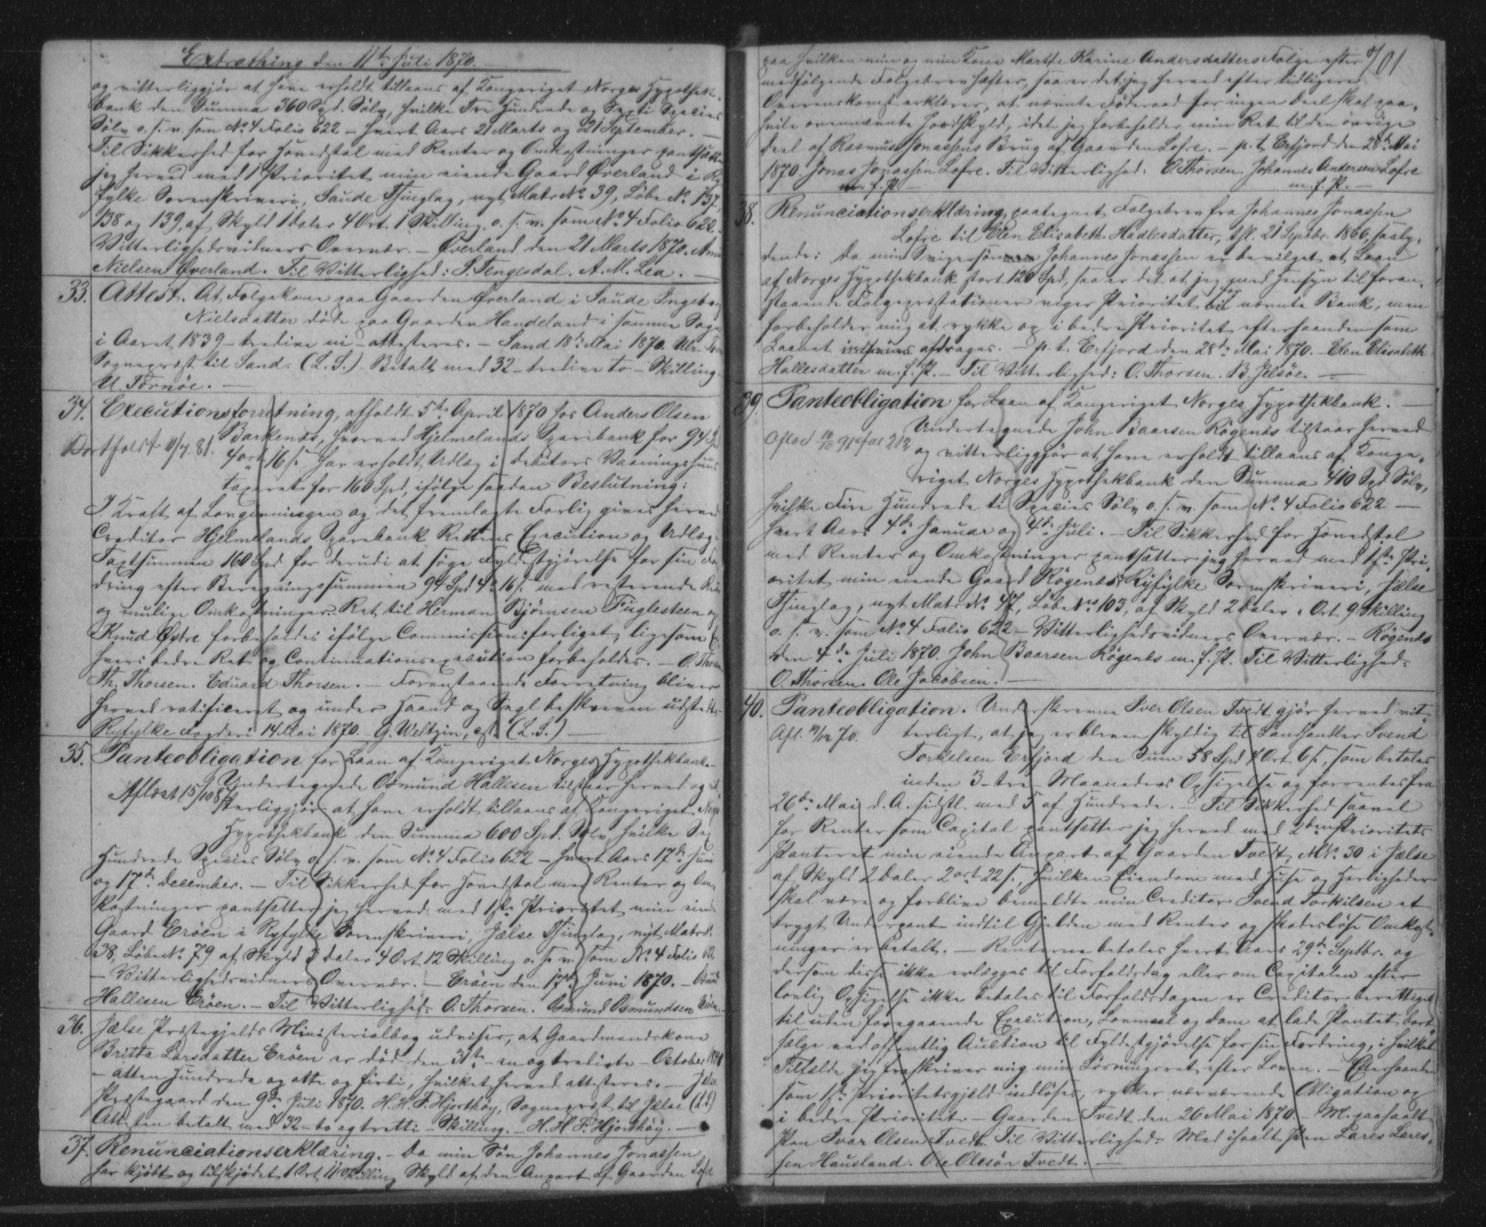 Extrathing den 11te Juli 1870.
og vitterliggjør at have erholdt tillaans af Kongeriget Norges Hypothek-
bank den Summa 360 Spd. Sølv, hvilke Tre Hundrede og Sexti Species
Sølv o. s. v. som No 4 Folio 622 – hvert Aars 21 Marts og 21 September. –
Til Sikkerhed for Hovedstol med Renter og Omkostninger pantsætter
jeg herved med Prioritet min eiende Gaard Øverland i Ry-
fylke Sorenskriveri, Saude Thinglag, nyt Matr. No 39, Løbe No 137,
138 og 139, af Skyld 1 Daler 4 Ort. 1 Skilling o. s. v. som No 4 Folio 622.
Vitterlighedsvidners Overvær. – Øverland den 21 Marts 1870.
Nielsen Øverland. Til Vitterlighed: S. Tengesdal. A. M. Lea. –
33. Attest. At Folgekone paa Gaarden Øverland i Saude Ingeborg
Nielsdatter døde paa Gaarden Handeland i samme Sogn
i Aaret 1839 – tredive ni attesteres. – Sand 18de Mai 1870.
Sognepræst til Sand. (L. S.) Betalt med 32 – tredive to – Skilling
U. Tornøe. –
34. Executionsforretning, afholdt 5te April 1870 hos Anders Olsen
Barkenæs, hvorved Hjelmelands Sparebank for 94 Spd
Bortfaldt 81.
4 ort 16 s. har erholdt Udlæg i Debitors Vaaningshuus
taxeret for 160 Spd, ifølge saadan Beslutning:
I Kraft af Lovgivningen og det fremlagte Forlig gives herved
Creditor Hjelmelands Sparebank Rettens Execution og Udlæg
Taxtsummen 160 Spd for derudi at søge Fyldestgjørelse for sin For-
dring efter Beregningssummen 94 Spd 4 o 16 s. med resterende
og mulige Omkostninger. Ret til Herman Bjørnsen Fuglesteen og
Knud Østre forbeholdes ifølge Commissionsforliget, ligesom
hvers bedre Ret og Continuationsexecution forbeholdes. – O. Thorsen
Th. Thorsen. Eduard Thorsen. – Foranstaaende Forretning bliver
herved ratificeret og under Haand og Segl beskreven udstedt.
Ryfylke Fogderi 14 Mai 1870. G. Weltzin, cst. (L. S.) –
35. Panteobligation for Laan af Kongeriget Norges Hypothekbank.
Undertegnede Osmund Hallesen tilstaar herved og vit-
Aflæst 15/10 8
terliggjør at have erholdt tillaans af Kongeriget Norges
Hypothekbank den Summa 600 Spd. Sølv, hvilke Sex
Hundrede Species Sølv o. s. v. som No 4 Folio 622 – hvert Aars 17de Juni
og 17de December. – Til Sikkerhed for Hovedstol med Renter og Om-
kostninger pantsætter jeg herved med 1ste Prioritet min eiende
Gaard Erøen i Ryfylke Sorenskriveri, Jælse Thinglag, nyt Matr. No
38, Løbe No 79 af Skyld 3 Daler 4 Ort. 12 Skilling o. s. v. som No 4 Folio 622
– Vitterlighedsvidners Overvær. – Erøen den 17de Juni 1870. – Osmund
Hallesen Erøen. – Til Vitterlighed: O. Thorsen. Osmund Osmundsen Erøen.
36. Jælse Præstegjelds Ministerialbog udviser, at Gaardmandskone
Britta Larsdatter Erøen er død den 31te – en og tredivte – October 1848
– atten Hundrede og otte og firti, hvilket herved attesteres. – Jelse
Præstegaard den 9de Juli 1870. H. H. F. Hjorthøy, Sognepræst til Jælse (L. S.)
Attesten betalt med 32 – to og tretti – Skilling. H. H. F. Hjorthøy. –
37. Renunciationserklæring. – Da min Søn Johannes Jonassen
har kjøbt og tilskjødet 1 Ort 11 Skilling Skyld af den Anpart af Gaarden Løfre
701
paa hvilken min og min Kone Marthe Karine Andersdatters Folge efter
medfølgende Folgebrev hæfter, saa er det jeg herved efter tidligere
Overenskomst erklærer, at nævnte Føderaad for ingen Deel skal paa-
hvile ovennævnte Jordskyld, idet jeg forbeholder min Ret til den øvrige
Deel af Rasmus Jonassens Brug af Gaarden Løfre. – p. t. Erfjord den 28de Mai
1870. Jonas Jonassen Løfre. Til Vitterlighed: O. Thorsen. Johannes Andersen Løfre
m. f. P. – m. f. P. –
38. Renunciationserklæring, paategnet Folgebrev fra Johannes Jonassen
Løfre til Elen Elisabeth Hadlesdatter, thl. 21 Septbr. 1866, saaly-
dende: Da min Svigersøn Johannes Jonassen er bevilget et Laan
af Norges Hypothekbank stort 120 Spd, saa er det at jeg med Hensyn til foran-
staaende Folgepræstationer viger Prioritet for nævnte Bank, men
forbeholder mig at rykke op i bedre Prioritet efterhaanden som
Laanet afdrages. – p. t. Erfjord den 28de Mai 1870. Elen Elisabeth
Hallesdatter m. f. P. – Til Vitterlighed: O. Thorsen. B. Jelsøe. –
39. Panteobligation for Laan af Kongeriget Norges Hypothekbank. –
Undertegnede John Baarsen Røgenes tilstaar herved
og vitterliggjør at have erholdt tillaans af Konge-
riget Norges Hypothekbank den Summa 410 Spd Sølv,
hvilke Fire Hundrede ti Species Sølv o. s. v. som No 4 Folio 622 –
hvert Aars 4de Januar og 4de Juli. – Til Sikkerhed for Hovedstol
med Renter og Omkostninger pantsætter jeg herved med 1ste Pri-
oritet min eiende Gaard Røgenes i Ryfylke Sorenskriveri, Jælse
Thinglag, nyt Matr. No 47, Løbe No 103, af Skyld 2 Daler 1 Ort. 9 Skilling
o. s. v. som No 4 Folio 622 – Vitterlighedsvidners Overvær. – Røgenes
den 4de Juli 1870. John Baarsen Røgenes m. f. P. Til Vitterlighed:
O. Thorsen. Ole Jakobsen. –
40. Panteobligation. Underskrevne Iver Olsen Tvedt gjør herved vit-
terligt, at jeg er bleven skyldig til Landhandler Svend
Torkelsen Erfjord den Sum 58 Spd 1 Ort 6 s, som betales
inden 3 – tre – Maaneders Opsigelse og forrentes fra
26de Mai d. A. sidstl. med 5 af Hundrede. – Til Sikkerhed saavel
for Renter som Capital pantsætter jeg herved med 2den Prioritets
Panteret min eiende Anpart af Gaarden Tvedt, M. No 30 i Jælse
af Skyld 2 Daler 2 ort 22 s, hvilken Eiendom med Huse og Herligheder
skal være og forblive bemeldte min Creditor Svend Torkilsen et
trygt Underpant indtil Gjelden med Renter og skadesløse Omkost-
ninger er betalt. – Renterne betales hvert Aars 29de Septbr. og
dersom disse ikke erlægges til Forfaldsdag eller om Capitalen efter
lovlig Opsigelse ikke betales til Forfaldsdagen er Creditor berettiget
til uden foregaaende Execution, Lovmaal og Dom at lade Pantet bort-
sælge ved offentlig Auction til Fyldestgjørelse for sin Fordring, i hvilket
Tilfælde jeg fraskriver mig min Løsningsret efter Loven. – Efterhaanden
som 1ste Prioritetsgjeld indløses, rykker nærværende Obligation op
i bedre Prioritet. – Gaarden Tvedt den 26 Mai 1870. – M. paaholdt
Pen Ivar Olsen Tvedt. Til Vitterlighed: Med iholdt Pen Lars Lars-
sen Hausland. Ole Olesøn Tvedt. –